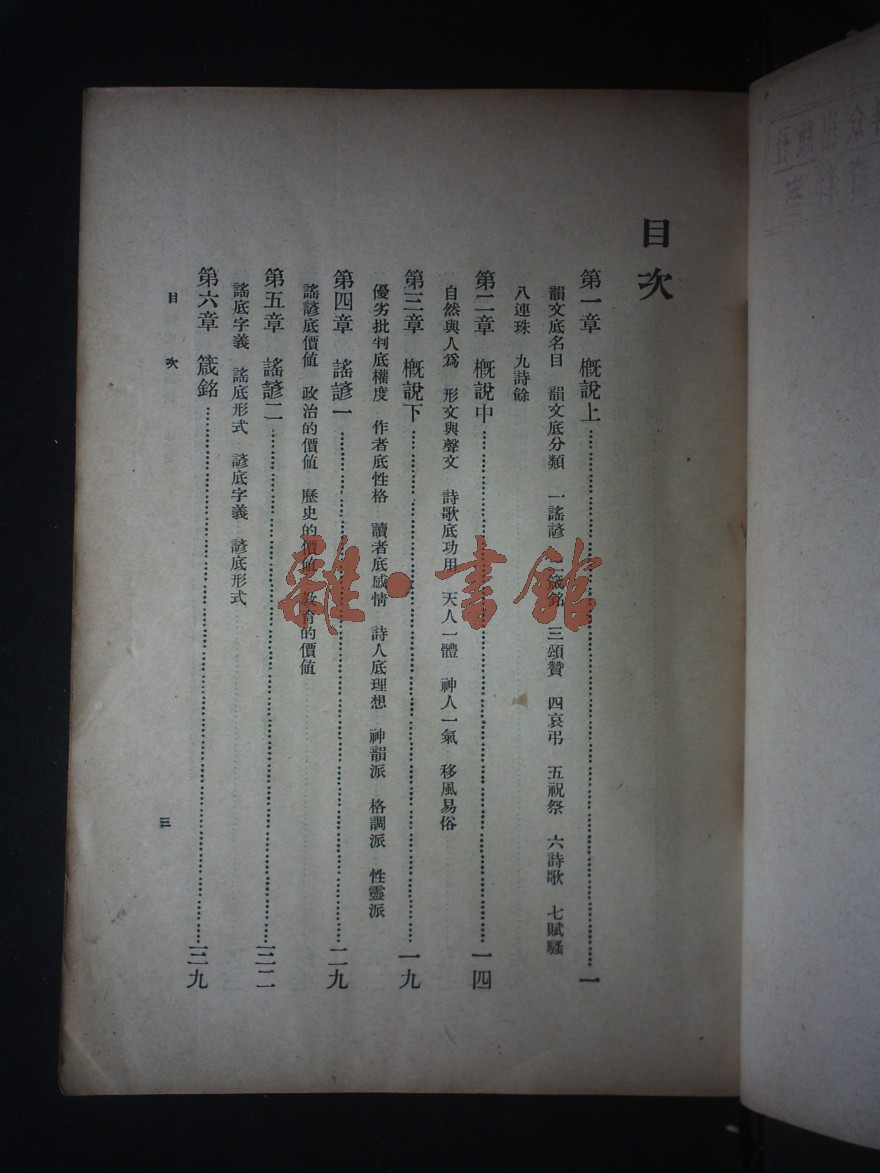 目次
第一章 概說上 一
韻文底名目 韻文底分類 一謠諺 二箴銘 三頌贊 四哀弔 五祝祭 六詩歌 七賦騷
八連珠 九詩餘
第二章 概說中 一四
自然與人爲 形文與聲文 詩歌底功用 天人一體 神人一氣 移風易俗
第三章 概說下 一九
優劣批判底權度 作者底性格 讀者底感情 詩人底理想 神韻派 格調派 性靈派
第四章 謠諺一 二九
謠諺底價値 政治的價値 歷史的價値 教育的價値
第五章 謠諺二 三二
謠底字義 謠底形式 諺底字義 諺底形式
第六章 箴銘 三九
目次
三
雜·書館